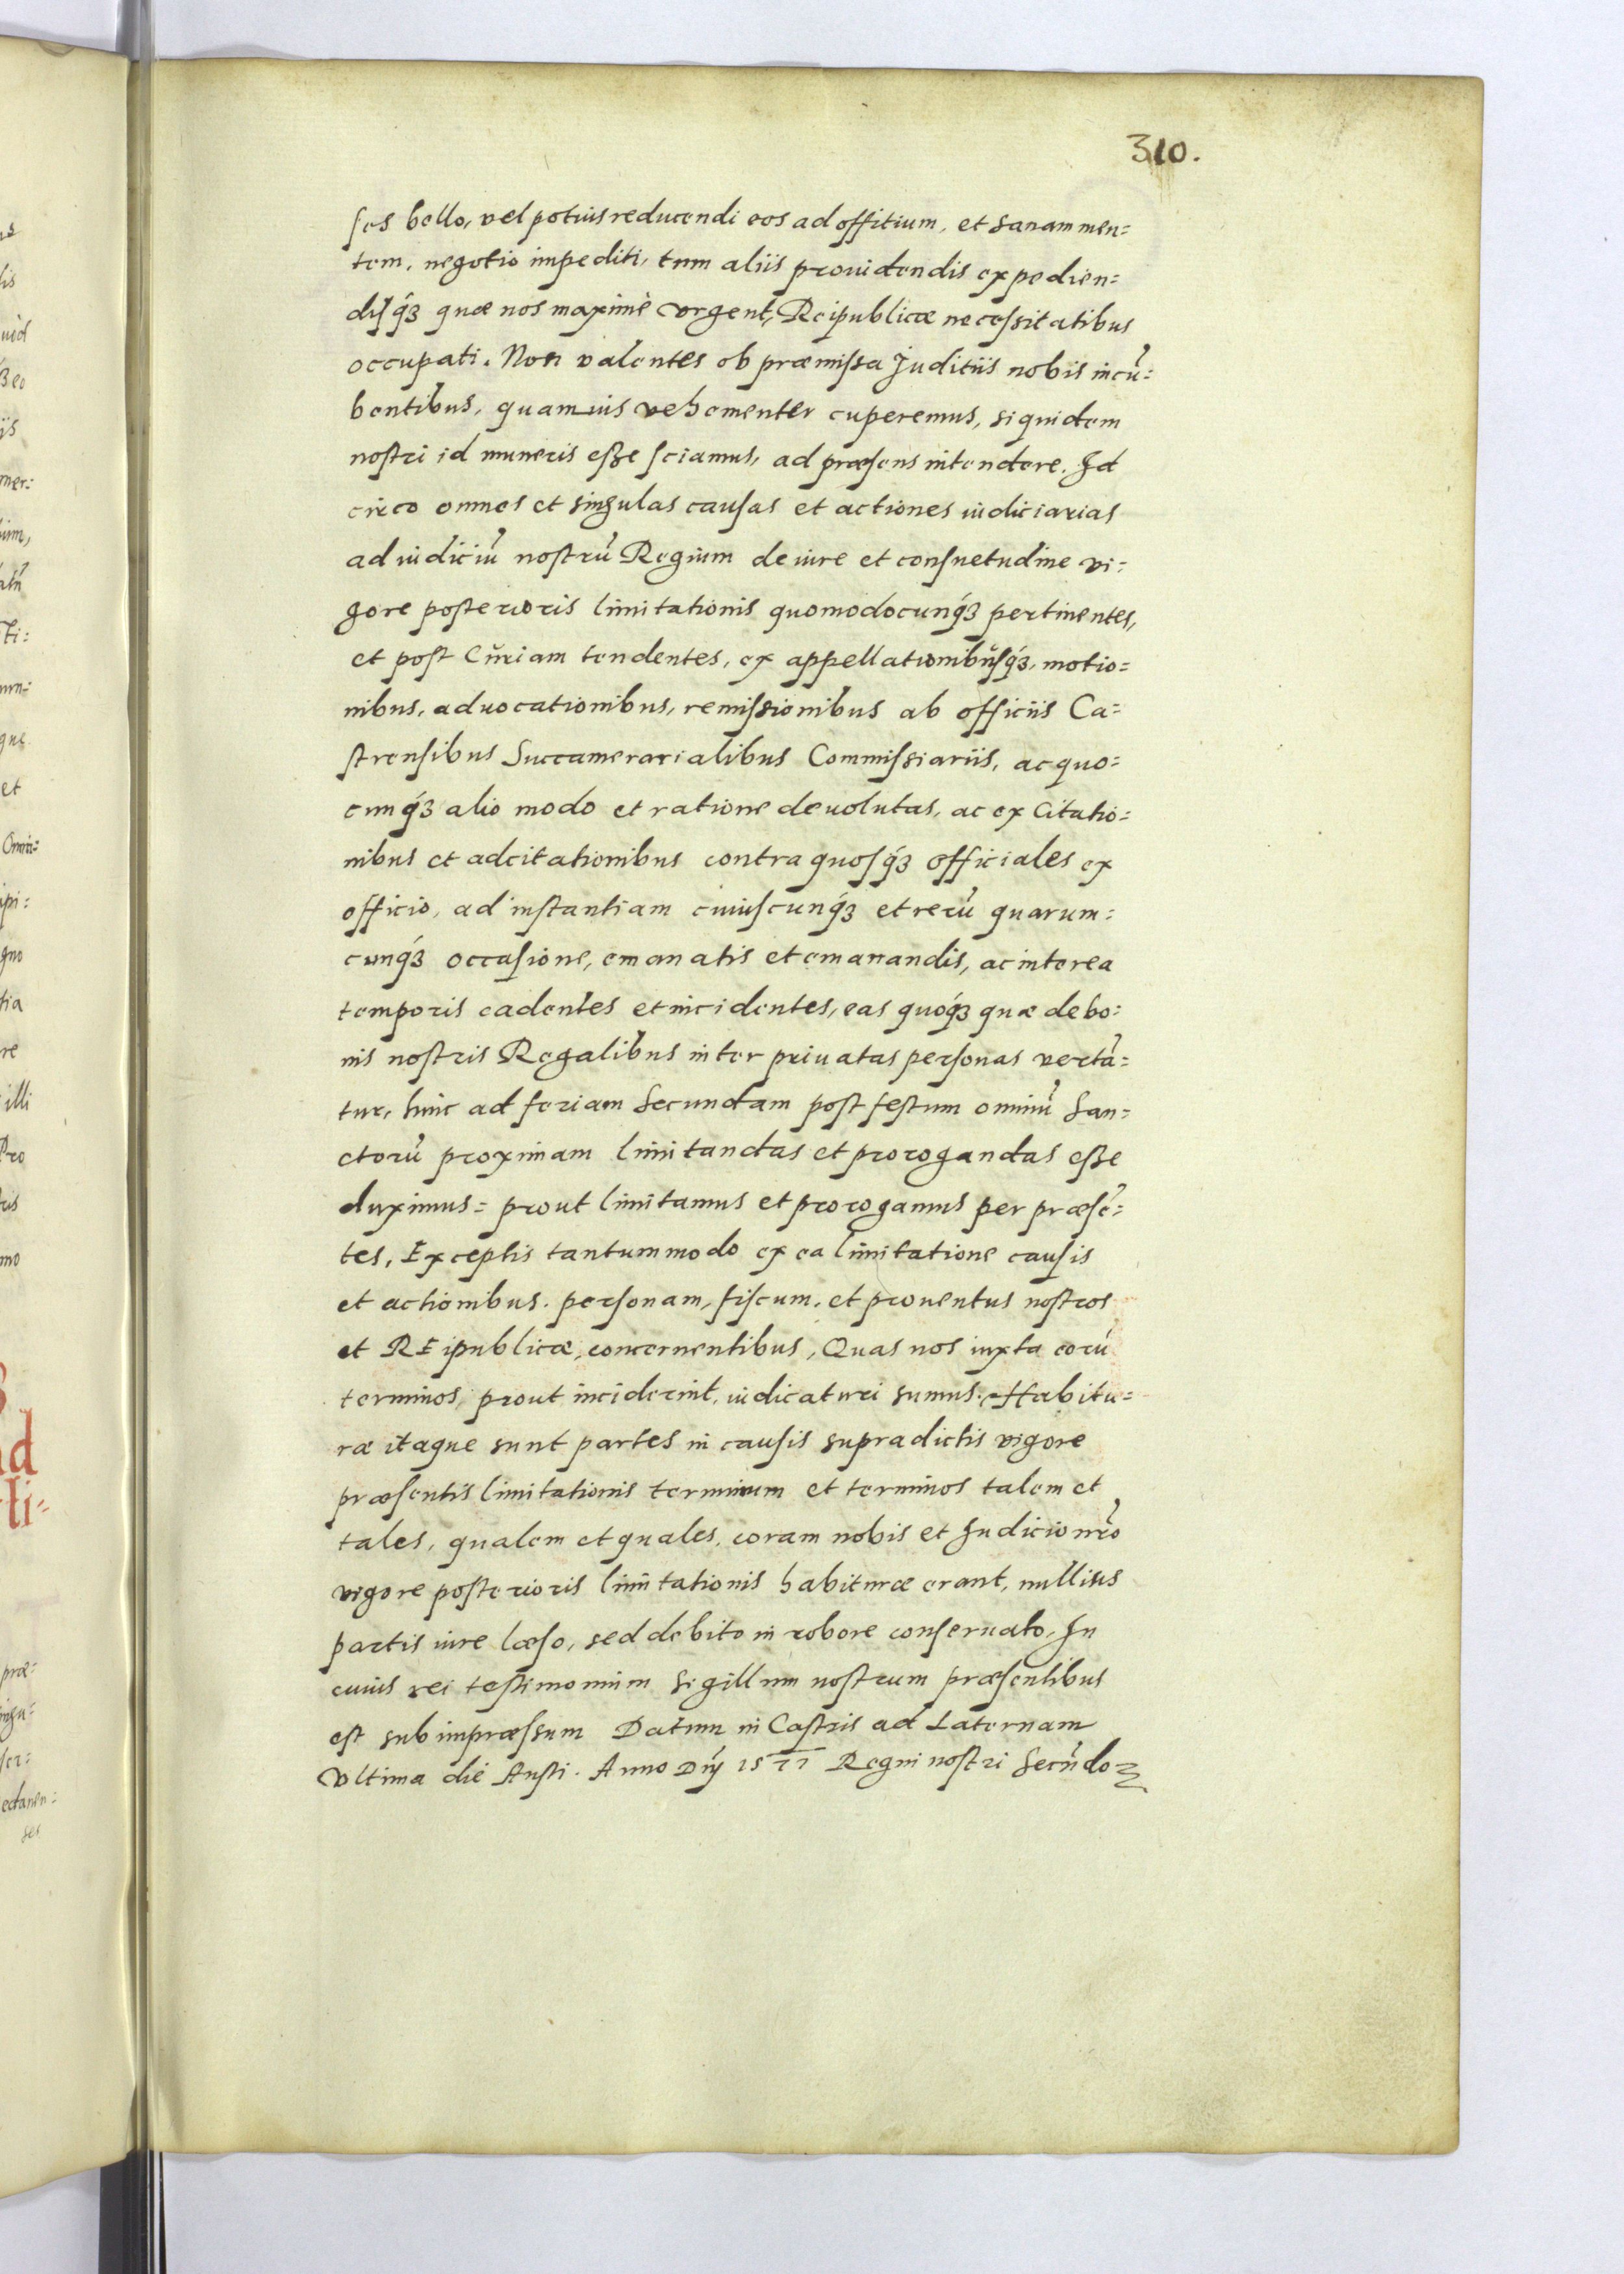 310.
ses bello, vel potius reducendi eos ad offitium, et sanam men=
tem, negotio impediti, tum aliis prouidendis expedien=
disq́ꝫ quæ nos maximè vrgent, Reipublicæ necessitatibus
occupati. Non valentes ob præmissa Juditiis nobis incũ=
bentibus, quamuis vehementer cuperemus, siquidem
nostri id muneris esse sciamus, ad præsens intendere. Id
circo omnes et singulas causas et actiones iudiciarias
ad iudiciũ nostrũ Regium de iure et consuetudine vi=
gore posterioris limitationis quomodocunq́ꝫ pertinentes,
et post Curiam tendentes, ex appellationibusq́ꝫ, motio=
nibus, aduocationibus, remissionibus ab officiis Ca=
strensibus Succamerarialibus Commissiariis, ac quo=
cunq́ꝫ alio modo et ratione deuolutas, ac ex Citatio=
nibus et adcitationibus contra quosq́ꝫ officiales ex
officio, ad instantiam cuiuscunq́ꝫ et rerũ quarum=
cunq́ꝫ occasione, emanatis et emanandis, ac interea
temporis cadentes et incidentes, eas quoq́ꝫ quæ de bo=
nis nostris Regalibus inter priuatas personas vertã=
tur, hinc ad feriam secundam post festum omniũ San=
ctorũ proximam limitandas et prorogandas esse
duximus = prout limitamus et prorogamus per præsẽ=
tes, Exceptis tantummodo ex ea limitatione causis
et actionibus. personam, fiscum, et prouentus nostros
et REipublicæ, concernentibus, Quas nos iuxta eorũ
terminos, prout inciderint, iudicaturi sumus. Habitu=
ræ itaque sunt partes in causis supradictis vigore
præsentis limitationis terminum et terminos talem et
tales, qualem et quales, coram nobis et Judicio nr̃o
vigore posterioris limitationis habituræ erant, nullius
partis iure læso, sed debito in robore conseruato, In
cuius rei testimonium sigillum nostrum præsentibus
est subimpræssum Datum in Castris ad Laternam
Vltima die Austi. Anno Dnỹ 1577 Regni nostri Secũdo